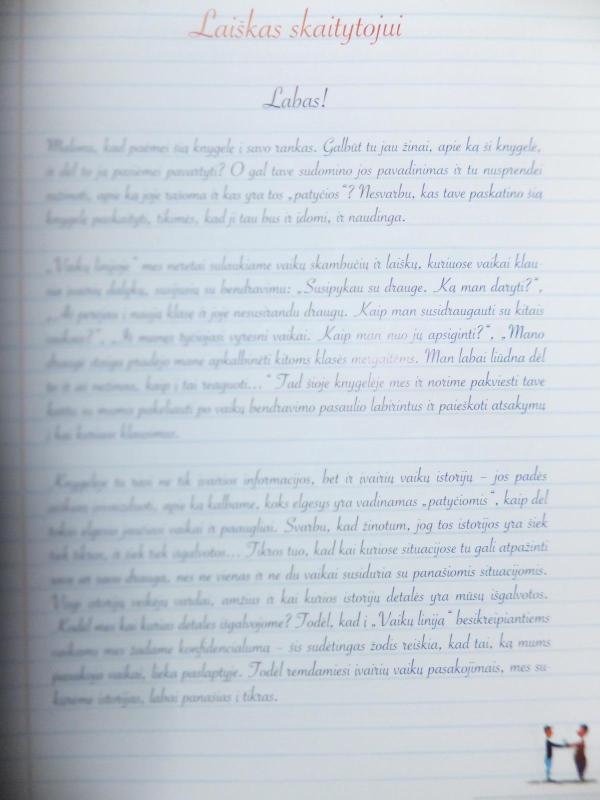 Laiškas skaitytojui
Labas!
Malonu, kad paėmei šią knygelę į savo rankas. Galbūt tu jau žinai, apie ką ši knygelė,
ir dėl to ją pasiėmei pavartyti? O gal tave sudomino jos pavadinimas ir tu nusprendei
sužinoti, apie ką joje rašoma ir kas yra tos „patyčios“? Nesvarbu, kas tave paskatino šią
knygelę paskaityti, tikimės, kad ji tau bus ir įdomi, ir naudinga.
„Vaikų linijoje“ mes neretai sulaukiame vaikų skambučių ir laiškų, kuriuose vaikai klau-
sia įvairių dalykų, susijusių su bendravimu: „Susipykau su drauge. Ką man daryti?“,
„Aš perėjau į naują klasę ir joje nesusirandu draugų. Kaip man susidraugauti su kitais
vaikais?“, „Iš manęs tyčiojasi vyresni vaikai. Kaip man nuo jų apsiginti?“, „Mano
draugė staiga pradėjo mane apkalbinėti kitoms klasės mergaitėms. Man labai liūdna dėl
to ir aš nežinau, kaip į tai reaguoti...“ Tad šioje knygelėje mes ir norime pakviesti tave
kartu su mumis pakeliauti po vaikų bendravimo pasaulio labirintus ir paieškoti atsakymų
į kai kuriuos klausimus.
Knygelėje tu rasi ne tik įvairios informacijos, bet ir įvairių vaikų istorijų – jos padės
apie ką kalbame, koks elgesys yra vadinamas „patyčiomis“, kaip dėl
tokio elgesio jaučiasi vaikai ir paaugliai. Svarbu, kad žinotum, jog tos istorijos yra šiek
tiek tikros, ir šiek tiek išgalvotos... Tikros tuo, kad kai kuriose situacijose tu gali atpažinti
save ar savo draugą, nes ne vienas ir ne du vaikai susiduria su panašiomis situacijomis.
Visgi istorijų veikėjų vardai, amžius ir kai kurios istorijų detalės yra mūsų išgalvotos.
Kodėl mes kai kurias detales išgalvojome? Todėl, kad į „Vaikų liniją“ besikreipiantiems
vaikams mes žadame konfidencialumą – šis sudėtingas žodis reiškia, kad tai, ką mums
pasakoja vaikai, lieka paslaptyje. Todėl remdamiesi įvairių vaikų pasakojimais, mes su-
kūrėme istorijas, labai panašias į tikras.